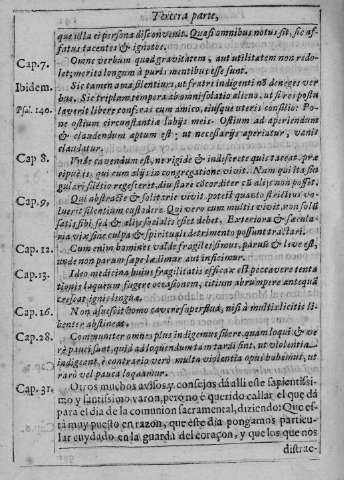 Tercera parte,
que illa ei persona disconvenit. Quasi omnibus notus sit, sic af-
fatus tacentes & ignotos.
Cap. 7. Omne verbum quod gravitatem, aut utilitatem non redo-
let; merito longum à puris mentibus esse sunt.
Ibidem. Sic tamen ama silentium, ut fratri indigenti nõ deneges ver
bum. Sic
Psal. 140. ne os-
tium circunstantiæ labijs meis. Ostium ad aperiendum
& claudendum aptum est; ut necessarijs aperiatur, vanis
claudatur.
Cap 8. cavendum est, ne rigide & indiscrete quis taceat, præ
cipuè is, qui cum alijs in congregatione vivit. Nam qui ita sin
gulari silētio regeseret, diu stare cōcorditer cũ alijs non posset.
Cap. 9. Qui abstractè & solitariè vivit, potest quanto strictius vo-
luerit silentium custodire. Qui vero cum multis vivit, non solũ
satis sibi, sed & alijs socialis esse debet. Exteriora & sæcula-
ria vix sine culpa & spirituali detrimento possunt tractari.
Cap. 12. Cum enim homines valde fragiles simus, parum & leve est,
unde non parum sæpe lædimur aut inficimur.
Cap. 13. Ideo medicina huius fragilitatis efficax est peccare vero tenta
tionis laqueum fugere occasionem, citius abrumpere antequã
crescat ignis linguæ.
Cap. 16. Non assuescit homo cavere superflua, nisi à multis licitis li-
benter abstineat.
Cap. 28. Communiter omnes plus indigemus silere, quàm loqui: & ve
rè pauci sunt, qui ad loquendum tã tardi sint, ut violentia
indigent, è contrario verò multa violentia opus habemus, ut
rarò vel pauca loquamur.
Cap. 31. Otros muchos avisos, y consejos dà alli este sapientissi-
mo y santissimo varon, pero no è querido callar el que dà
para el dia de la comunion sacramental, diziendo: Que es-
tà muy puesto en razon, que este dia pongamos particu-
lar cuydado en la guarda del coraçon, y que los que nos
distrae-